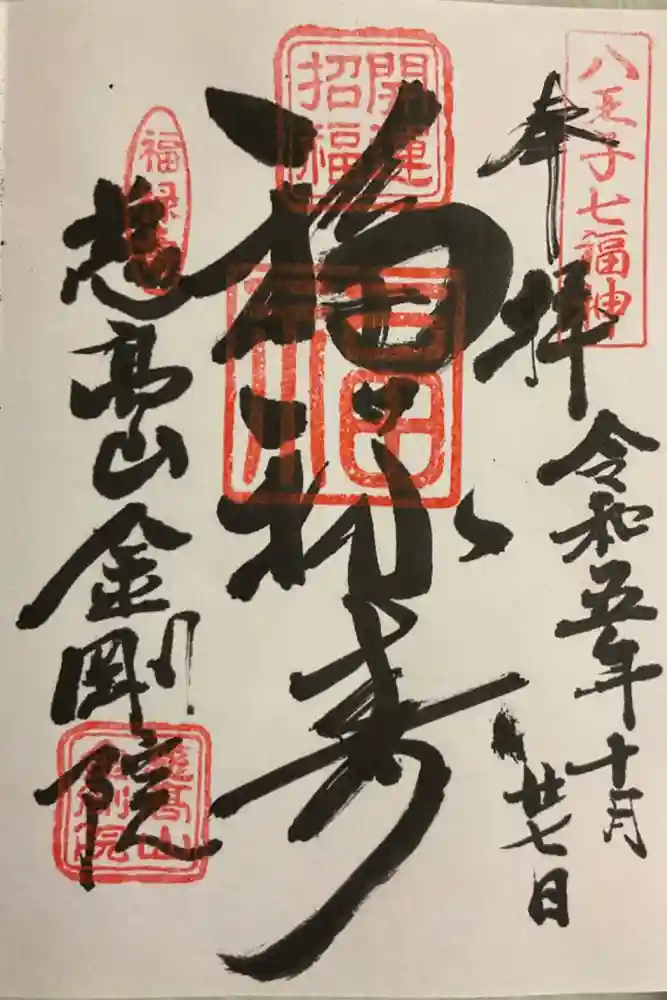 八王子七福神
奉拝
令和五年十月
廿七日
開運
招福
福禄寿
福禄寿
慈高山金剛院
慈高山
金剛院